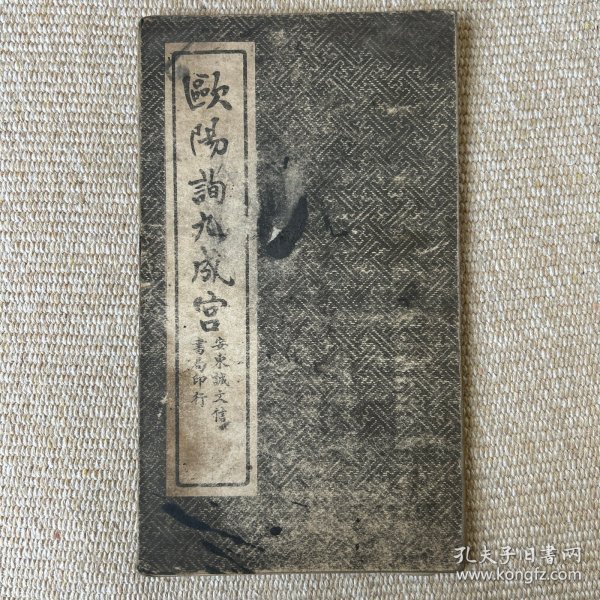 歐陽詢九成宮
安東誠文信
書局印行
孔夫子旧書网
www.kongfz.com